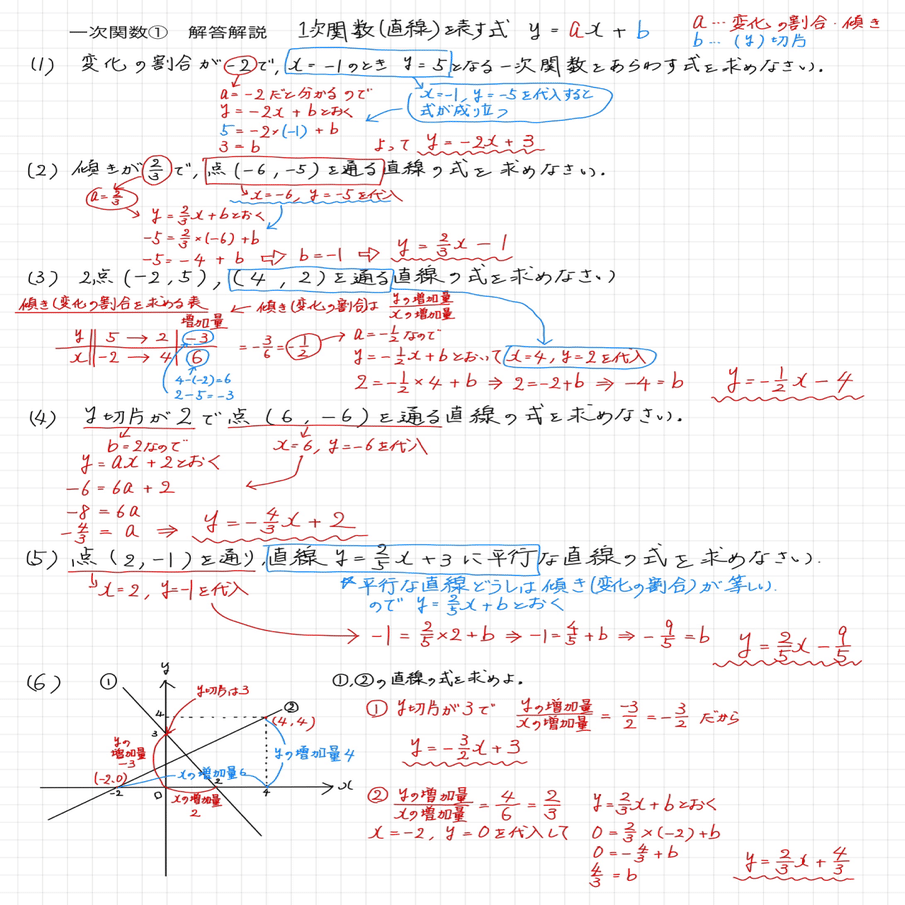 一次関数① 解答解説 1次関数(直線)を表す式 y = ax + b
a … 変化の割合・傾き
b … (y)切片
(1) 変化の割合が-2で, x=-1のとき y=5となる一次関数をあらわす式を求めなさい.
a=-2だと分かるので
y=-2x+bとおく
5=-2×(-1)+b
3=b
x=-1, y=-5を代入すると
式が成り立つ
よって y=-2x+3
(2) 傾きが2/3で, 点(-6,-5)を通る直線の式を求めなさい.
a=2/3
x=-6, y=-5を代入
y=2/3x+bとおく
-5=2/3×(-6)+b
-5=-4+b ⇨ b=-1 ⇨ y=2/3x-1
(3) 2点(-2,5),(4,2)を通る直線の式を求めなさい
傾き(変化の割合を求める表 ← 傾き(変化の割合)は yの増加量/xの増加量
増加量
y 5→2 -3
x -2→4 6
=-3/6=-1/2
4-(-2)=6
2-5=-3
a=-1/2なので
y=-1/2x+bとおいて x=4, y=2を代入
2=-1/2×4+b ⇒ 2=-2+b ⇒ -4=b y=-1/2x-4
(4) y切片が2で点(6,-6)を通る直線の式を求めなさい.
b=2なので
x=6, y=-6を代入
y=ax+2とおく
-6=6a+2
-8=6a
-4/3=a ⇒ y=-4/3x+2
(5) 点(2,-1)を通り,直線y=2/5x+3に平行な直線の式を求めなさい.
x=2, y=-1を代入
平行な直線どうしは傾き(変化の割合)が等しい.
ので y=2/5x+bとおく
-1=2/5×2+b ⇒ -1=4/5+b ⇒ -9/5=b y=2/5x-9/5
(6) ①,②の直線の式を求めよ.
①
y
y切片は3
②
4
(4,4)
3
yの
増加量
-3
yの増加量4
(-2,0)
xの増加量6
-2
0
2
4
x
xの増加量
2
① y切片が3で yの増加量/xの増加量 = -3/2 = -3/2 だから
y=-3/2x+3
② yの増加量/xの増加量 = 4/6 = 2/3
x=-2, y=0を代入して
y=2/3x+bとおく
0=2/3×(-2)+b
0=-4/3+b
4/3=b
y=2/3x+4/3